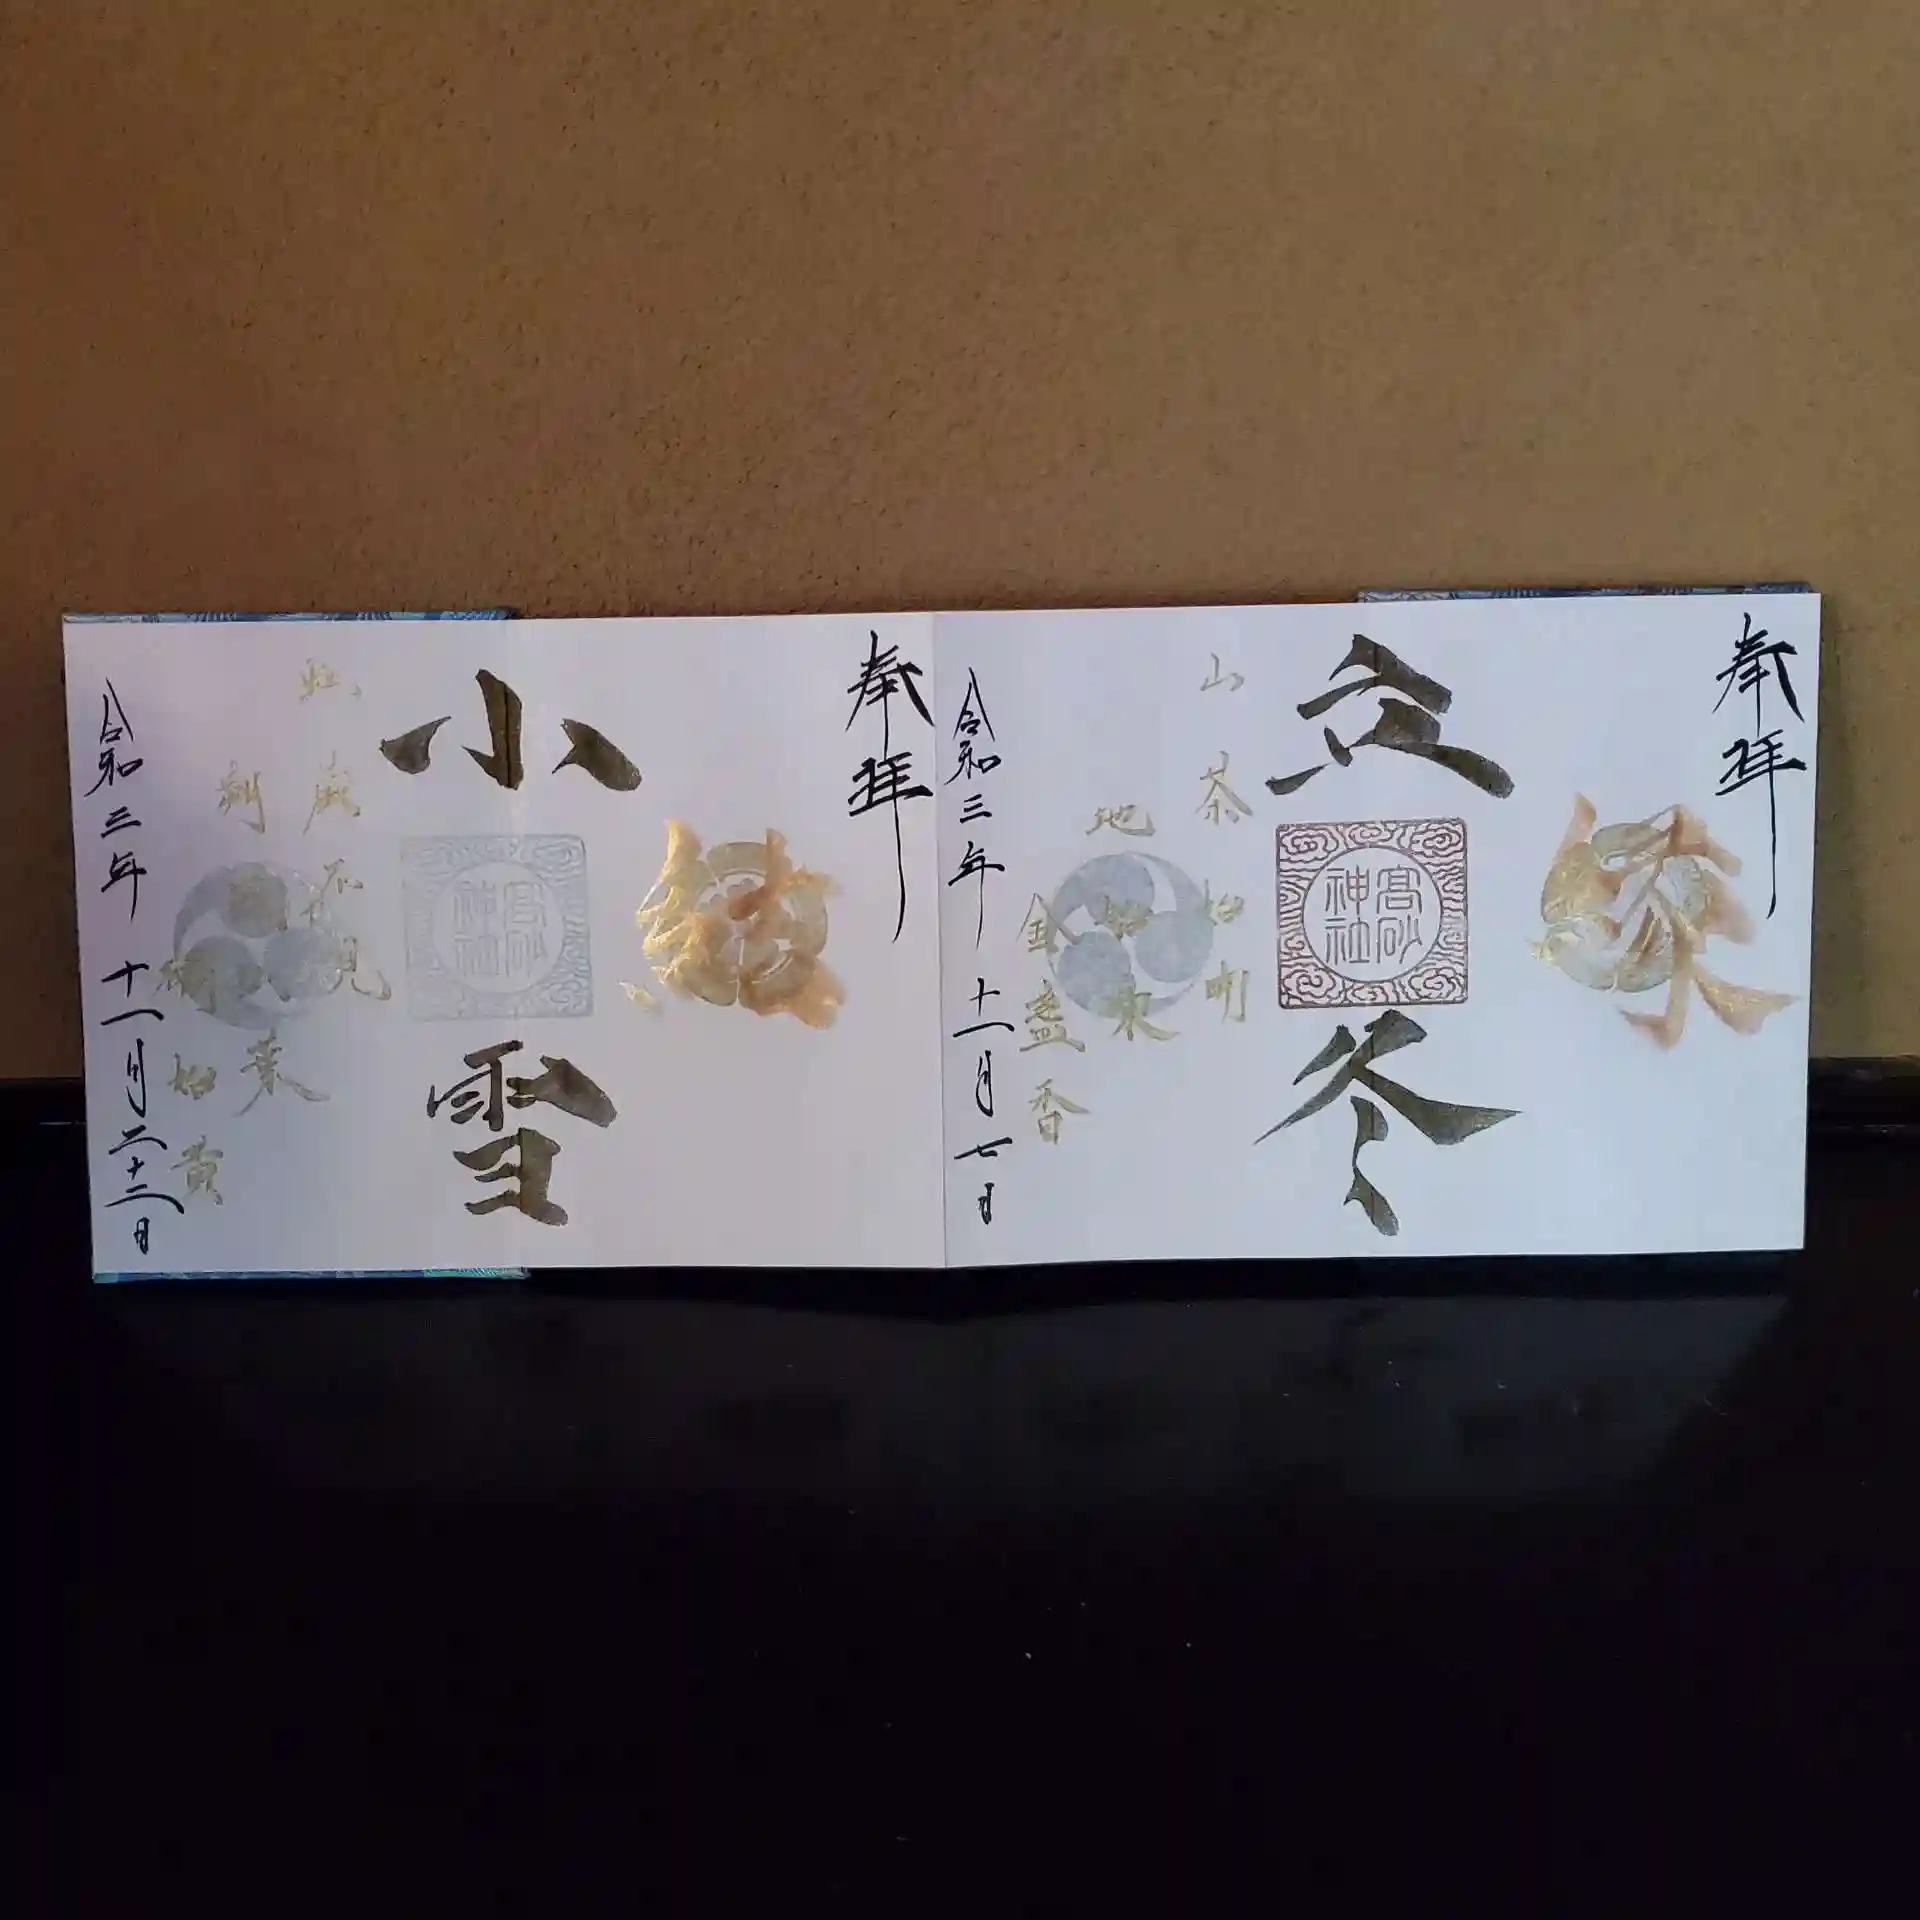 奉拝
縁
立冬
高砂
神社
山茶始開
地始凍
金盞香
令和三年十一月七日
奉拝
結
小雪
高砂
神社
虹蔵不見
朔風払葉
橘始黄
令和三年十一月二十二日